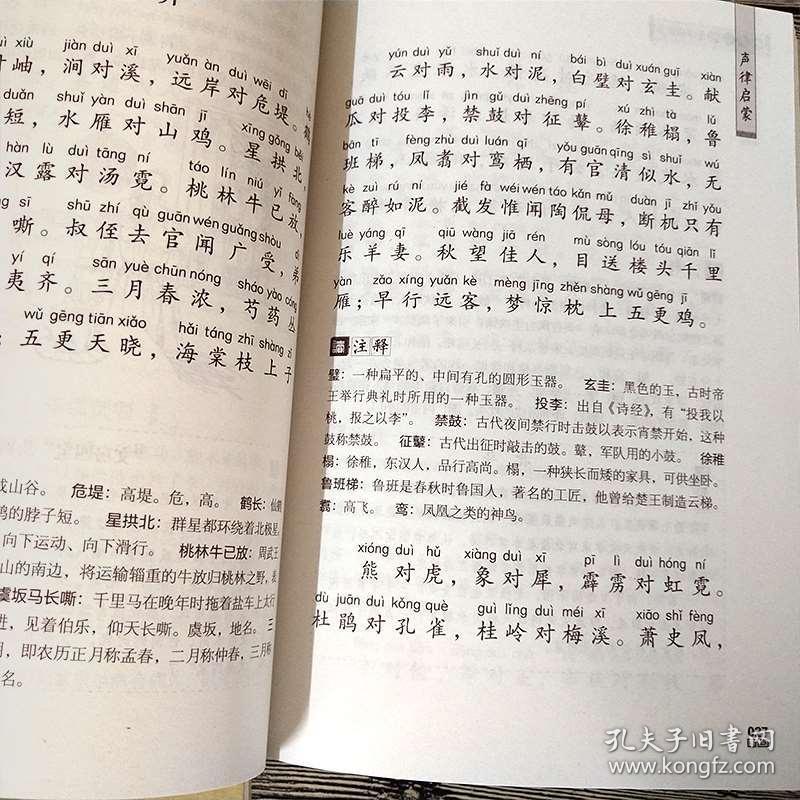 xiù jiàn duì xī yuǎn àn duì wēi dī
岫，涧对溪，远岸对危堤。
duǎn shuǐ yàn duì shān jī xīng gǒng běi
短，水雁对山鸡。星拱北，
hàn lù duì tāng ní táo lín niú yǐ fàng
汉露对汤霓。桃林牛已放，
sī shū zhí qù guān wén guǎng shòu dì
嘶。叔侄去官闻广受，弟
yí qí sān yuè chūn nóng sháo yào cóng
夷齐。三月春浓，芍药丛
wǔ gēng tiān xiǎo hǎi táng zhī shàng zǐ
；五更天晓，海棠枝上子
成山谷。 危堤：高堤。危，高。 鹤长：仙鹤
鸡的脖子短。 星拱北：群星都环绕着北极星
向下运动、向下滑行。 桃林牛已放：周武王
山的南边，将运输辎重的牛放归桃林之野，
虞坂马长嘶：千里马在晚年时拖着盐车上太行
进，见着伯乐，仰天长嘶。虞坂，地名。 三
月，即农历正月称孟春，二月称仲春，三月称
名。
声律启蒙
yún duì yǔ shuǐ duì ní bái bì duì xuán guī xiàn
云对雨，水对泥，白璧对玄圭。献
guā duì tóu lǐ jìn gǔ duì zhēng pí xú zhì tà lǔ
瓜对投李，禁鼓对征鼙。徐稚榻，鲁
bān tī fèng zhù duì luán qī yǒu guān qīng sì shuǐ wú
班梯，凤翥对鸾栖，有官清似水，无
kè zuì rú ní jié fà wéi wén táo kǎn mǔ duàn jī zhǐ yǒu
客醉如泥。截发惟闻陶侃母，断机只有
lè yáng qī qiū wàng jiā rén mù sòng lóu tóu qiān lǐ
乐羊妻。秋望佳人，目送楼头千里
yàn zǎo xíng yuǎn kè mèng jīng zhěn shàng wǔ gēng jī
雁；早行远客，梦惊枕上五更鸡。
注释
璧：一种扁平的、中间有孔的圆形玉器。 玄圭：黑色的玉，古时帝
王举行典礼时所用的一种玉器。 投李：出自《诗经》，有“投我以
桃，报之以李”。 禁鼓：古代夜间禁行时击鼓以表示宵禁开始，这种
鼓称禁鼓。 征鼙：古代出征时敲击的鼓。鼙，军队用的小鼓。 徐稚
榻：徐稚，东汉人，品行高尚。榻，一种狭长而矮的家具，可供坐卧。
鲁班梯：鲁班是春秋时鲁国人，著名的工匠，他曾给楚王制造云梯。
翥：高飞。 鸾：凤凰之类的神鸟。
xióng duì hǔ xiàng duì xī pī lì duì hóng ní
熊对虎，象对犀，霹雳对虹霓。
dù juān duì kǒng què guì lǐng duì méi xī xiāo shǐ fèng
杜鹃对孔雀，桂岭对梅溪。萧史凤，
037
孔夫子旧书网
www.kongfz.com